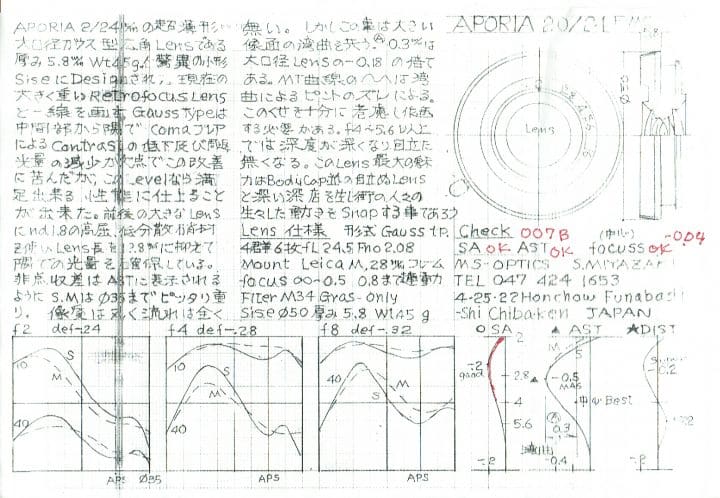 APORIA 2/24mmの超薄形
大口径ガウス型広角Lensである
厚み5.8% Wt45g! 驚異の小形
SiseにDesignされ、現在の
大きく重いRetrofocus Lens
と一線を画す。Gauss typeは
中間部から隅で Comaフレア
によるContrastの低下及び周辺
光量の減少が欠点でこの改善
に苦んだが、このLevelなら満
足出来る性能に仕上ること
が出来た。前後の大きなLens
にnd1.8の高屈、低分散硝材
を使いLens長を12.8%に抑えて
隅での光量を確保している。
非点収差はASTに表示される
ように S.MはØ35までピッタリ重
り、像度は良く流れは全く
無い。しかしこの事は大きい
像面の湾曲を伴う。Ⓐ0.3%は
大口径Lensの-0.18の倍で
ある。MT曲線のへへは湾
曲によるピントのズレによる。
このくせを十分に考慮し作画
する必要がある。f4~5.6以上
では深度が深くなり目立た
無くなる。このLens最大の魅
力はBody Cap並の目立ぬLens
と深い深度を生し街の人々の
生々した動きをSnapする事であろう
Lens 仕様 形式 Gauss tp.
4群6枚 fL 24.5 Fno 2.08
Mount Leica M, 28%フレーム
focus ∞~0.5 0.8まで連動
Filter M34 Gras-only
Sise Ø50 厚み 5.8 Wt 45 g
APORIA 2.0/24
Ø50
Lens
Check 007B (中心) -0.04
SA OK AST OK focuss OK
MS-OPTICS S.MIYAZAKI
TEL 047 424 1653
4-25-22 Honchow Funabash
-Shi Chibaken JAPAN
f2 def-24
S
M
10
40
APS Ø35
f4 def-.28
S
M
10
40
APS
f8 def-.32
S
M
10
40
APS
○SA ▲AST ★DIST
2
2.8
4
5.6
-.2
-.2
-0.5
MAS
中心Best
Ⓐ
0.3
湾曲
-0.4
-0.2
-.2